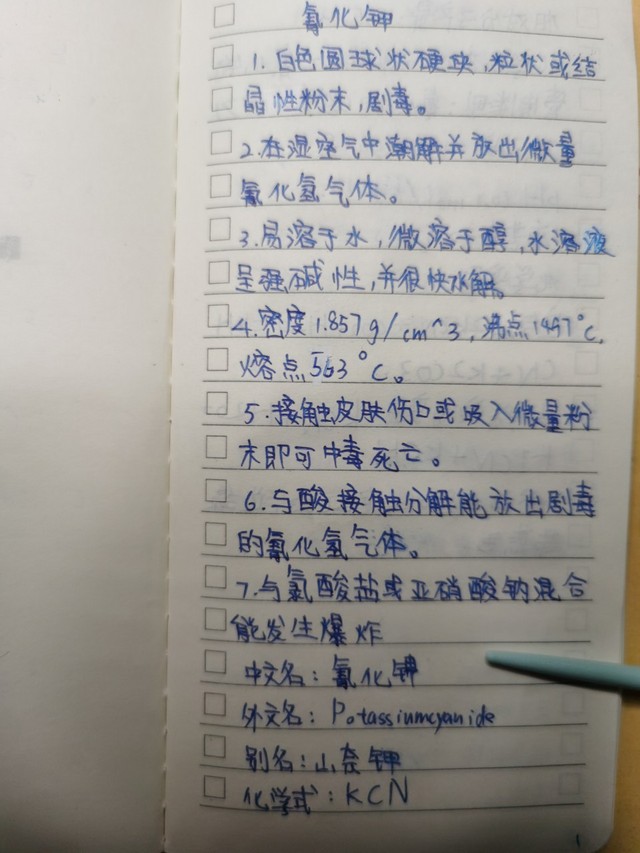 氰化钾
1.白色圆球状硬块,粒状或结
晶性粉末,剧毒。
2.在湿空气中潮解并放出微量
氰化氢气体。
3.易溶于水,微溶于醇,水溶液
呈强碱性,并很快水解。
4.密度1.857g/cm^3,沸点1497°C,
熔点563°C。
5.接触皮肤伤口或吸入微量粉
末即可中毒死亡。
6.与酸接触分解能放出剧毒
的氰化氢气体。
7.与氯酸盐或亚硝酸钠混合
能发生爆炸
中文名:氰化钾
外文名:Potassiumcyanide
别名:山奈钾
化学式:KCN